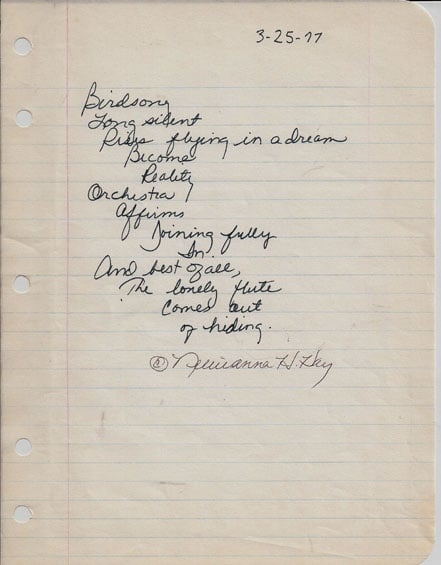 3-25-77
Birdsong
Long silent
Rises flying in a dream
Become
Reality
Orchestra
Affirms
Joining fully
In.
And best of all,
The lonely flute
Comes out
of hiding.
© H. Hay